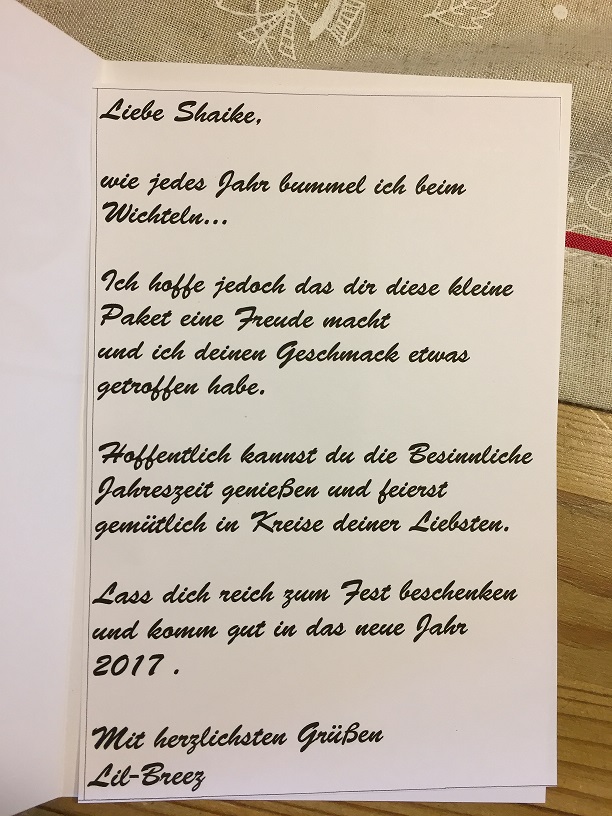 Liebe Shaike,
wie jedes Jahr bummel ich beim
Wichteln...
Ich hoffe jedoch das dir diese kleine
Paket eine Freude macht
und ich deinen Geschmack etwas
getroffen habe.
Hoffentlich kannst du die Besinnliche
Jahreszeit genießen und feierst
gemütlich in Kreise deiner Liebsten.
Lass dich reich zum Fest beschenken
und komm gut in das neue Jahr
2017 .
Mit herzlichsten Grüßen
Lil-Breez